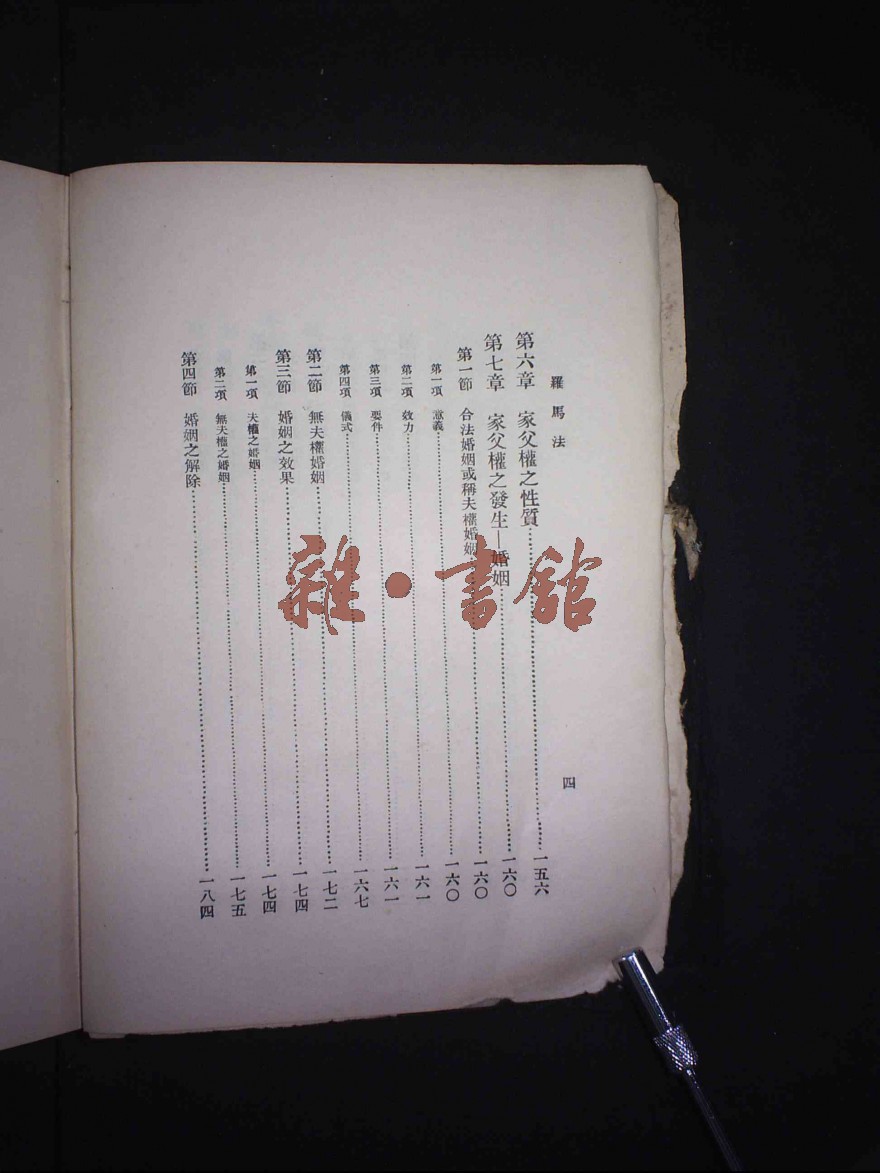 羅馬法
四
第六章 家父權之性質……一五六
第七章 家父權之發生—婚姻……一六〇
第一節 合法婚姻或稱夫權婚姻……一六〇
第一項 意義……一六〇
第二項 效力……一六一
第三項 要件……一六一
第四項 儀式……一六七
第二節 無夫權婚姻……一七二
第三節 婚姻之效果……一七四
第一項 夫權之婚姻……一七四
第二項 無夫權之婚姻……一七五
第四節 婚姻之解除……一八四
雜·書館